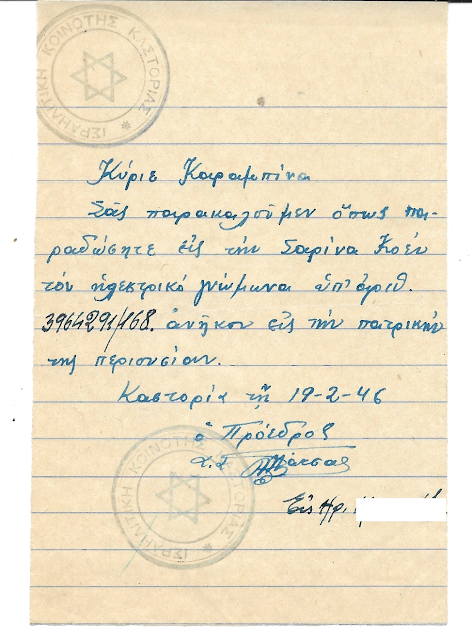 ΙΣΡΑΗΛΙΤΙΚΗ ΚΟΙΝΟΤΗΣ ΚΑΣΤΟΡΙΑΣ
Κύριε Καραμπίνα
Σᾶς παρακαλοῦμεν ὅπως πα-
ραδώσητε εἰς τὴν Σαρίνα Κοέν
τόν ἠλεκτρικό γνώμωνα ὑπ' ἀριθ.
3964291/168. ἀνῆκον εἰς τὴν πατρικήν
της περιουσίαν.
Καστορίᾳ τῇ 19-2-46
ὁ Πρόεδρος
Μάτσας
ΙΣΡΑΗΛΙΤΙΚΗ ΚΟΙΝΟΤΗΣ ΚΑΣΤΟΡΙΑΣ
Εἰς